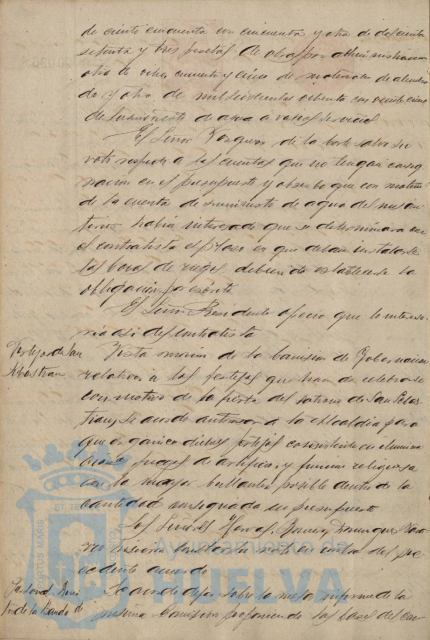 de ciento cincuenta con cincuenta y otra de doscientas
setenta y tres pesetas de obras por administracion
otra de ocho cuarenta y cinco de materiales de alumbra
do y otra de mil doscientas ochenta con veinte cinco
de suministro de agua a varios
El Señor Vazquez de la Corte salvo su
voto respecto a las cuentas que no tengan consig
nacion en el presupuesto y observo que con motivo
de la cuenta de suministro de agua del
habia interesado que se determinara con
el contratista el plazo en que deban instalarse
las bocas de riego, debiendo establecerse la
obligacion por escrito
El Señor Presidente ofrecio que lo interesa
ria asi del contratista
Festejos de San
Sebastian
Vista mocion de la Comision de Gobernacion
relativa a los festejos que han de celebrarse
con motivo de la fiesta del Patrono San Sebas
tian, se acordo autorizar a la Alcaldia para
que organice dichos festejos consistentes en ilumina
ciones, fuegos de artificio, y funcion religiosa
con la mayor brillantez posible dentro de la
cantidad consignada en presupuesto
Los Señores
hicieron constar su voto en contra del pre
cedente acuerdo
de la Banda de
Se acordo dejar sobre la mesa informe de la
misma Comision proponiendo las bases del con
Ayuntamiento de
HUELVA